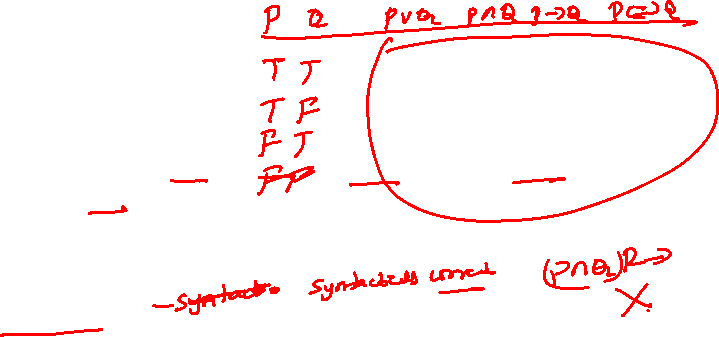 P Q P∨Q P∩Q P→Q P⟺Q
T T
T F
F T
F F
Syntactically correct (P∩Q)R→
X